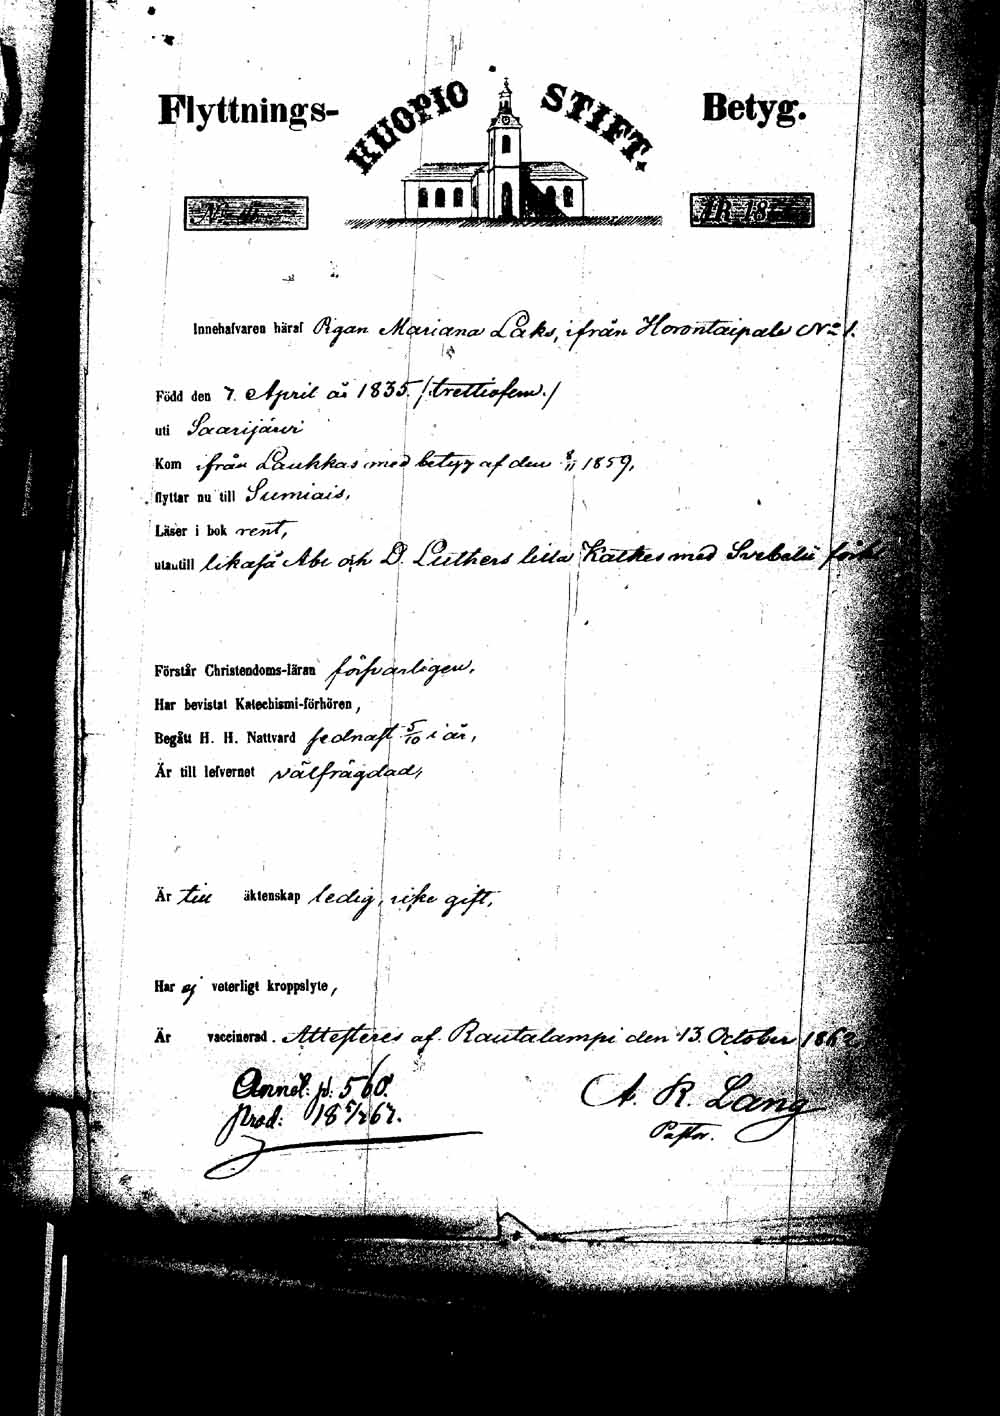 Flyttnings- KUOPIO STIFT. Betyg.
N:o ÅR 18
Innehafvaren häraf Pigan Mariana Laks, ifrån Horontaipale No 1.
Född den 7. April år 1835. /:trettiofem./
uti Saarijärvi
Kom ifrån Laukkas med betyg af den 8/11 1859,
flyttar nu till Sumiais,
Läser i bok rent,
utantill likaså Abc och D. Luthers lilla Katkes med Svebelii förkl
Förstår Christendoms-läran försvarligen,
Har bevistat Katechismi-förhören,
Begått H. H. Nattvard sednast 5/10 i år,
Är till lefvernet välfrägdad,
Är till äktenskap ledig, icke gift,
Har ej veterligt kroppslyte,
Är vaccinerad. Attesteres af Rautalampi den 13. October 1862
Annot: p. 560.
Prod: 18 67.
A. R. Lang
Pastor.